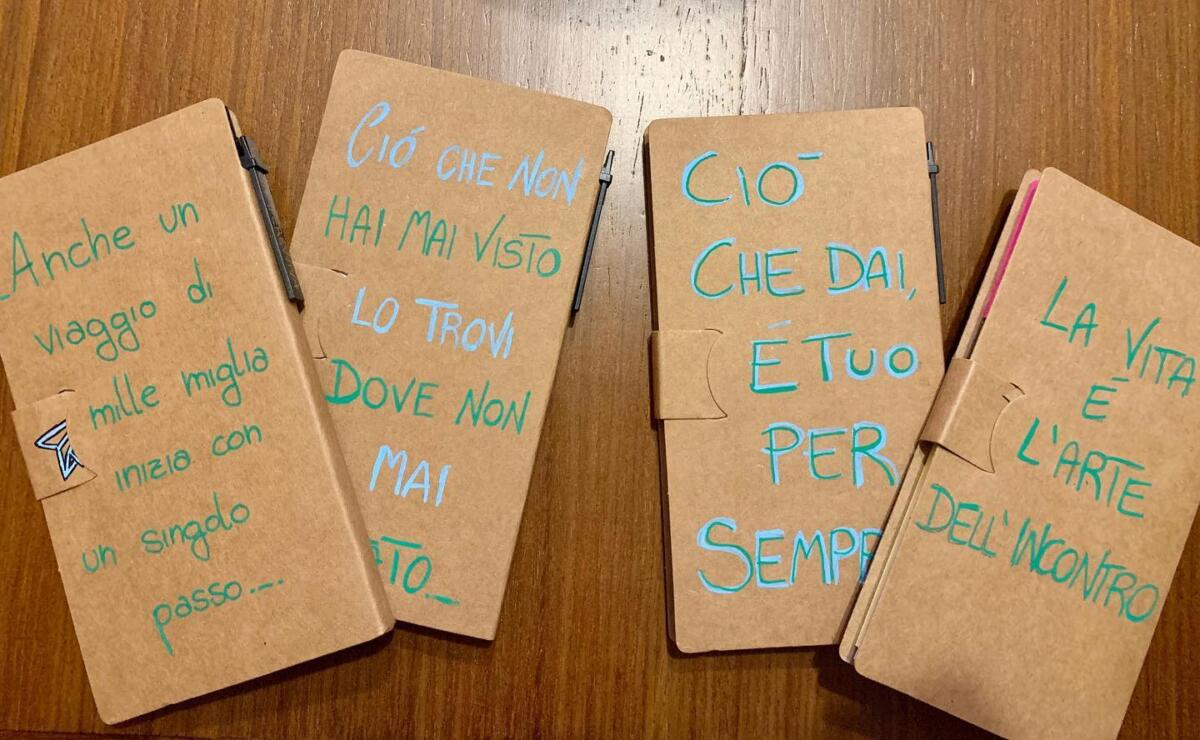 Anche un
viaggio di
mille miglia
inizia con
un singolo
passo....
CIÓ CHE NON
HAI MAI VISTO
LO TROVI
DOVE NON
MAI
CIÓ
CHE DAI,
É TUO
PER
LA VITA
É
L'ARTE
DELL'INCONTRO